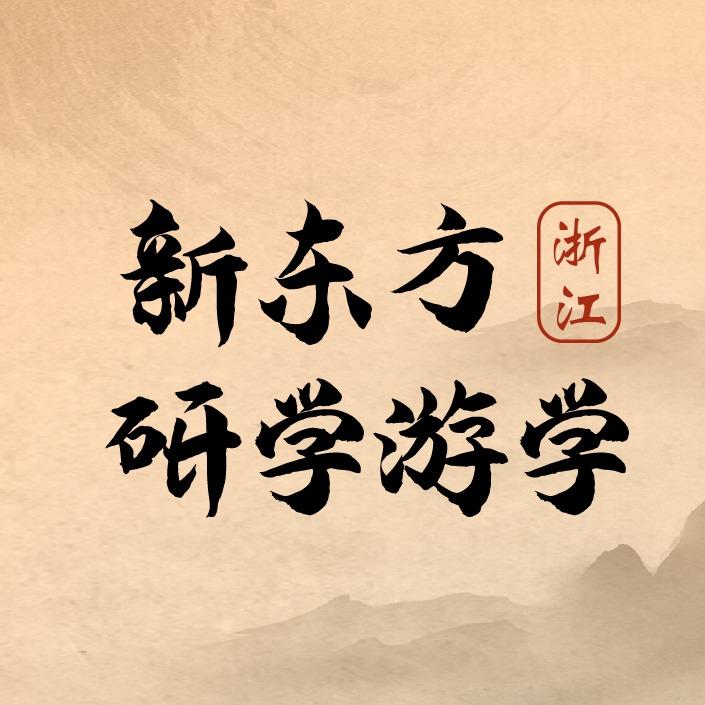 新东方
浙江
研学游学